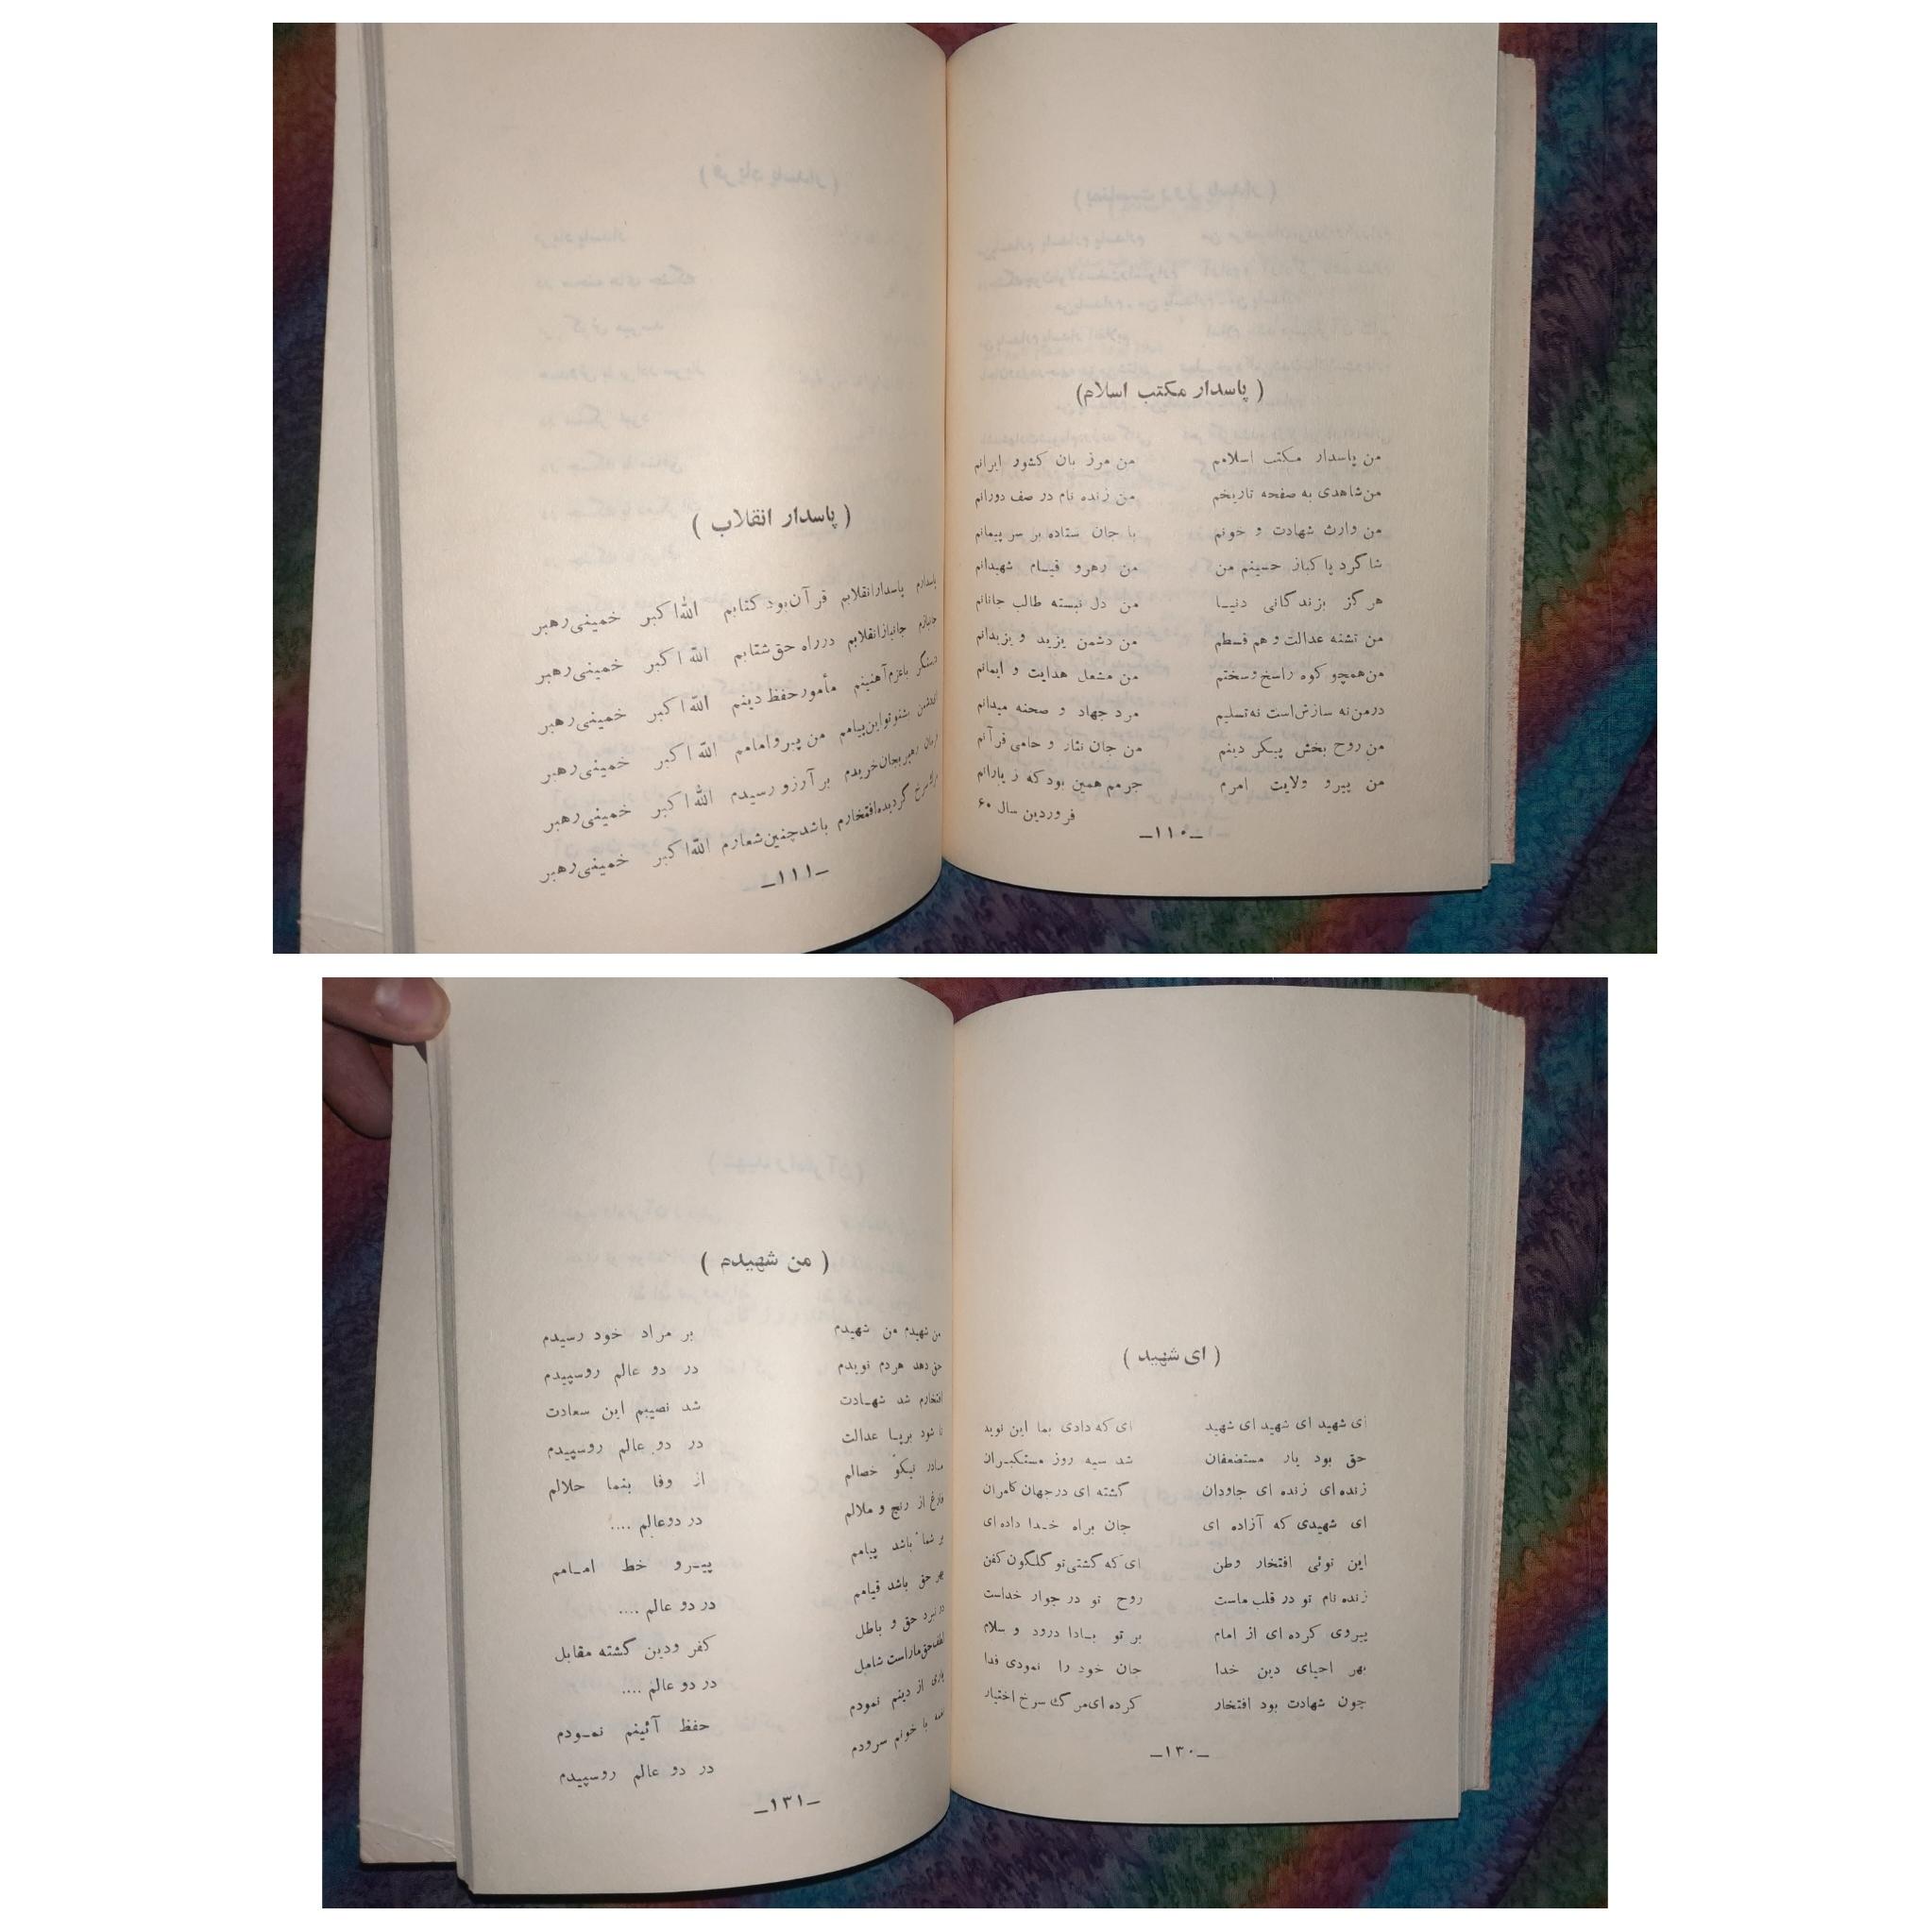 ( پاسدار مکتب اسلام)
من پاسدار مکتب اسلامم من مرز بان کشور ایرانم
من شاهدی به صفحه تاریخم من زنده نام در صف دورانم
من وارث شهادت و خونم با جان ستاده بر سر پیمانم
شاگرد پاکباز حسینم من من رهرو قیام شهیدانم
هرگز بزندگانی دنیا من دل نبسته طالب جانانم
من تشنه عدالت و هم قسطم من دشمن یزید و یزیدانم
من همچو کوه راسخ و سختم من مشعل هدایت و ایمانم
در من نه سازش است نه تسلیم مرد جهاد و صحنه میدانم
من روح بخش پیکر دینم من جان نثار و حامی قرآنم
من پیرو ولایت امرم جرمم همین بود که ز یارانم
فروردین سال ۶۰
ـ۱۱۰ـ
( پاسدار انقلاب )
پاسدارم پاسدار انقلابم قرآن بود کتابم الله اکبر خمینی رهبر
جانبازم جانباز انقلابم در راه حق شتابم الله اکبر خمینی رهبر
باعزم آهنینم مأمور حفظ دینم الله اکبر خمینی رهبر
بشنو تو این پیامم من پیرو امامم الله اکبر خمینی رهبر
رهبر بجان خریدم بر آرزو رسیدم الله اکبر خمینی رهبر
سرخ گردیده افتخارم باشد چنین شعارم الله اکبر خمینی رهبر
ـ۱۱۱ـ
( ای شهید )
ای شهید ای شهید ای شهید ای که دادی بما این نوید
حق بود یار مستضعفان شد سیه روز مستکبران
زنده ای زنده ای جاودان گشته ای در جهان کامران
ای شهیدی که آزاده ای جان براه خدا داده ای
این توئی افتخار وطن ای که گشتی تو گلگون کفن
زنده نام تو در قلب ماست روح تو در جوار خداست
پیروی کرده ای از امام بر تو بادا درود و سلام
بهر احیای دین خدا جان خود را نمودی فدا
چون شهادت بود افتخار کرده ای مرگ سرخ اختیار
ـ۱۳۰ـ
( من شهیدم )
من شهیدم من شهیدم بر مراد خود رسیدم
حق دهد هردم نویدم در دو عالم روسپیدم
افتخارم شد شهادت شد نصیبم این سعادت
تا شود برپا عدالت در دو عالم روسپیدم
مادر نیکو خصالم از وفا بنما حلالم
فارغ از رنج و ملالم در دوعالم ....
بر شما باشد پیامم پیرو خط امامم
بهر حق باشد قیامم در دو عالم ....
در نبرد حق و باطل کفر ودین گشته مقابل
لطف حق ماراست شامل در دو عالم ....
یاری از دینم نمودم حفظ آئینم نمودم
با خونم سرودم در دو عالم روسپیدم
ـ۱۳۱ـ